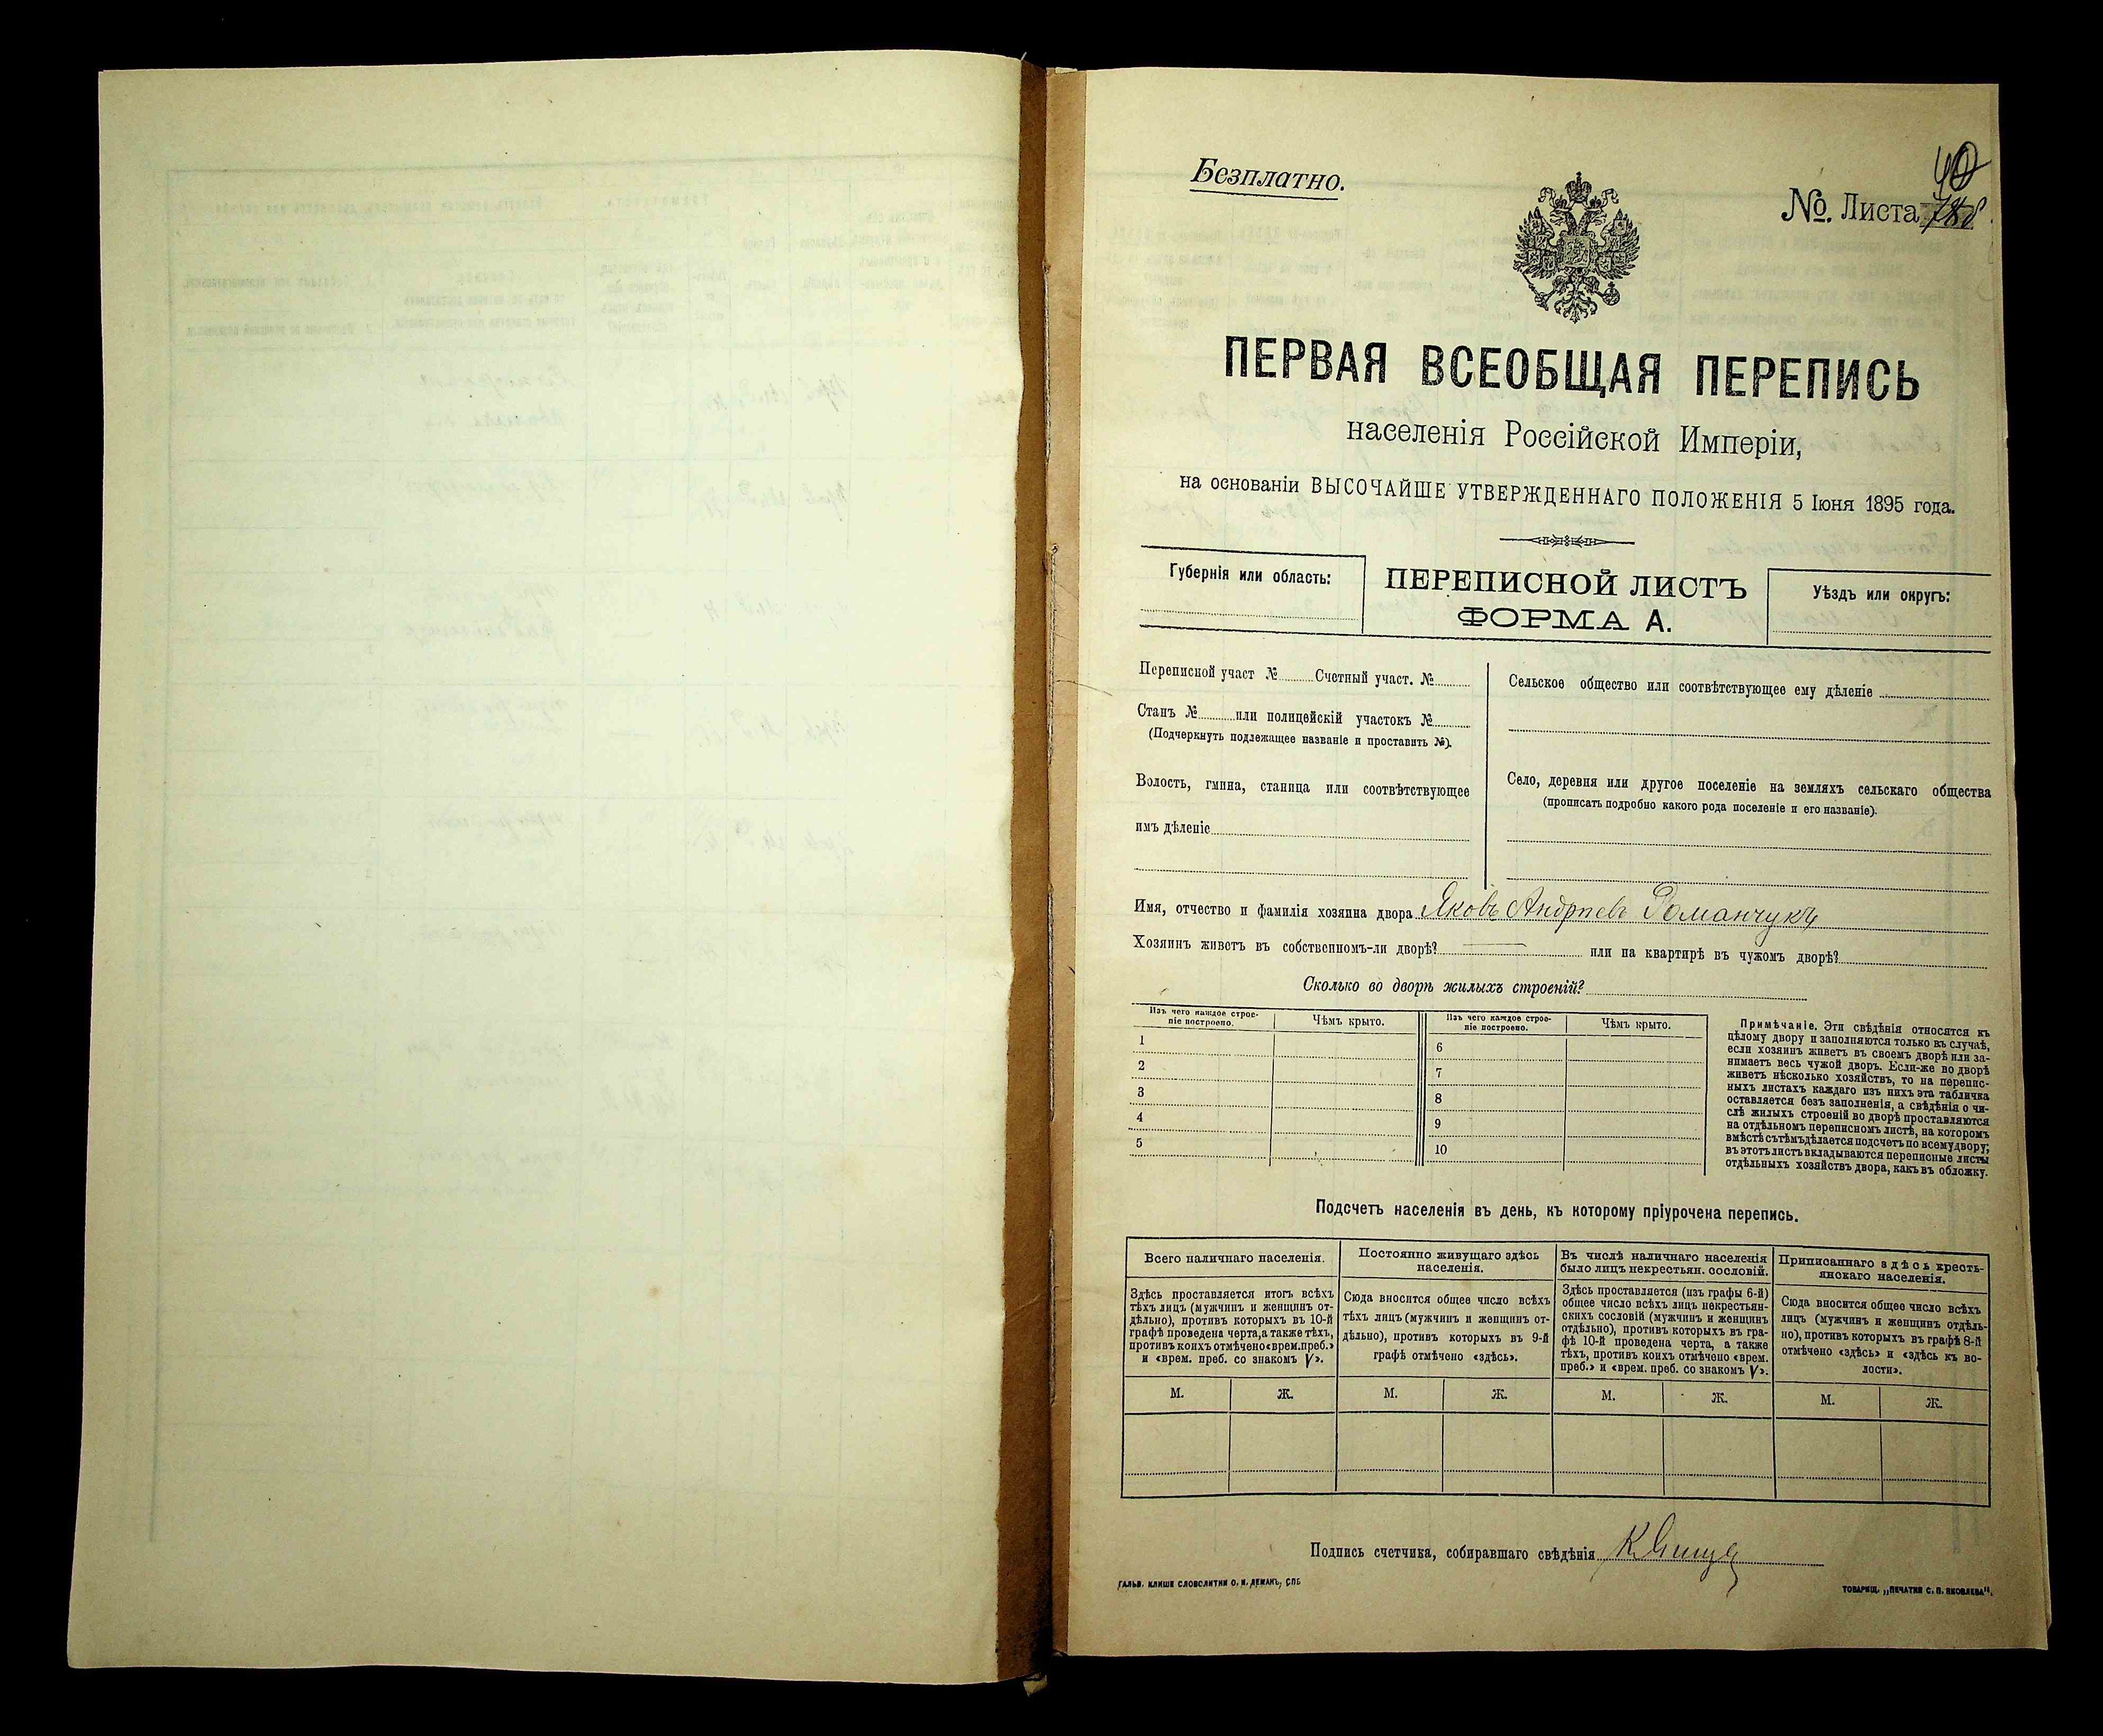 Безплатно.
40
№. Листа
ПЕРВАЯ ВСЕОБЩАЯ ПЕРЕПИСЬ
населенія Россійской Имперіи,
на основаніи ВЫСОЧАЙШЕ УТВЕРЖДЕННАГО ПОЛОЖЕНІЯ 5 Іюня 1895 года.
Губернія или область:
ПЕРЕПИСНОЙ ЛИСТЪ
ФОРМА А.
Уѣздъ или округъ:
Переписной участ № Счетный участ. №
Станъ № или полицейскій участокъ №
(Подчеркнуть подлежащее названіе и проставить №).
Волость, гмина, станица или соотвѣтствующее
имъ дѣленіе
Сельское общество или соотвѣтствующее ему дѣленіе
Село, деревня или другое поселеніе на земляхъ сельскаго общества
(прописать подробно какого рода поселеніе и его названіе).
Имя, отчество и фамилія хозяина двора Яковъ Андріевъ Романчукъ
Хозяинъ живетъ въ собственномъ-ли дворѣ? или на квартирѣ въ чужомъ дворѣ?
Сколько во дворѣ жилыхъ строеній?
Изъ чего каждое строе-
ніе построено.
Чѣмъ крыто.
1
2
3
4
5
Изъ чего каждое строе-
ніе построено.
Чѣмъ крыто.
6
7
8
9
10
Примѣчаніе. Эти свѣдѣнія относятся къ
цѣлому двору и заполняются только въ случаѣ,
если хозяинъ живетъ въ своемъ дворѣ или за-
нимаетъ весь чужой дворъ. Если-же во дворѣ
живетъ нѣсколько хозяйствъ, то на перепис-
ныхъ листахъ каждаго изъ нихъ эта табличка
оставляется безъ заполненія, а свѣдѣнія о чи-
слѣ жилыхъ строеній во дворѣ проставляются
на отдѣльномъ переписномъ листѣ, на которомъ
вмѣстѣ съ тѣмъ дѣлается подсчетъ по всему двору;
въ этотъ листъ вкладываются переписные листы
отдѣльныхъ хозяйствъ двора, какъ въ обложку.
Подсчетъ населенія въ день, къ которому пріурочена перепись.
Всего наличнаго населенія.
Здѣсь проставляется итогъ всѣхъ
тѣхъ лицъ (мужчинъ и женщинъ от-
дѣльно), противъ которыхъ въ 10-й
графѣ проведена черта, а также тѣхъ,
противъ коихъ отмѣчено «врем. преб.»
и «врем. преб. со знакомъ V».
М. Ж.
Постоянно живущаго здѣсь
населенія.
Сюда вносится общее число всѣхъ
тѣхъ лицъ (мужчинъ и женщинъ от-
дѣльно), противъ которыхъ въ 9-й
графѣ отмѣчено «здѣсь».
М. Ж.
Въ числѣ наличнаго населенія
было лицъ некрестьян. сословій.
Здѣсь проставляется (изъ графы 6-й)
общее число всѣхъ лицъ некрестьян-
скихъ сословій (мужчинъ и женщинъ
отдѣльно), противъ которыхъ въ гра-
фѣ 10-й проведена черта, а также
тѣхъ, противъ коихъ отмѣчено «врем.
преб.» и «врем. преб. со знакомъ V».
М. Ж.
Приписаннаго здѣсь кресть-
янскаго населенія.
Сюда вносится общее число всѣхъ
лицъ (мужчинъ и женщинъ отдѣль-
но), противъ которыхъ въ графѣ 8-й
отмѣчено «здѣсь» и «здѣсь къ во-
лости».
М. Ж.
Подпись счетчика, собиравшаго свѣдѣнія
ГАЛЬВ. КЛИШЕ СЛОВОЛИТНИ О. И. ЛЕМАНЪ, СПБ
ТОВАРИЩ. „ПЕЧАТНЯ С. П. ЯКОВЛЕВА“.